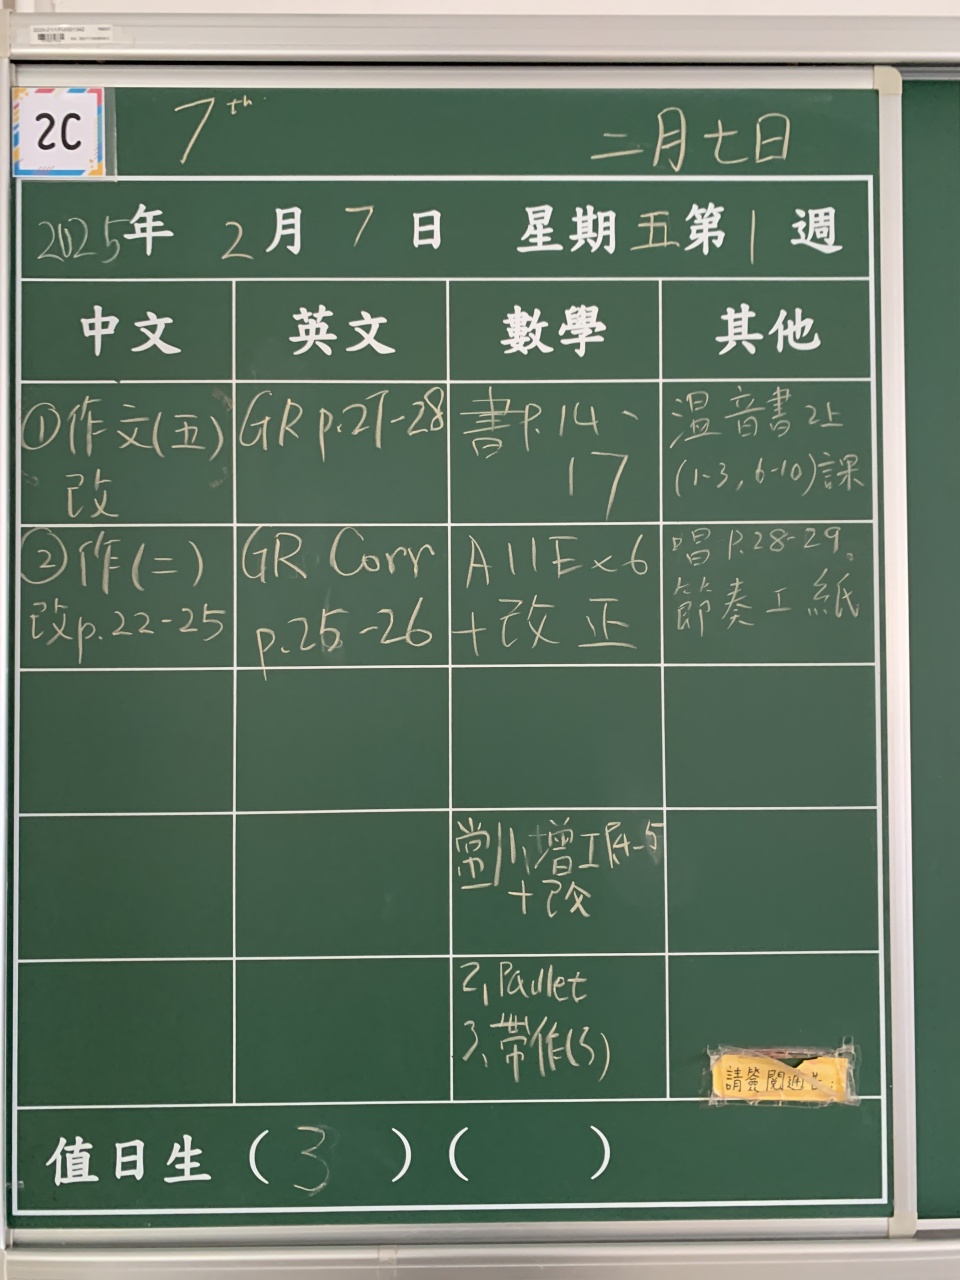 2C
7th
二月七日
2025年 2月 7日 星期五第1週
中文 英文 數學 其他
①作文(五)
改
GR p.27-28
書P.14、
17
溫音書2上
(1-3, 6-10)課
②作(二)
改p.22-25
GR Corr
p.25-26
AllEx6
+改正
唱P.28-29。
節奏工紙
堂1、增工P.4-5
+改
2,
3、帶作(3)
請簽閱通告
值日生 (3) ( )